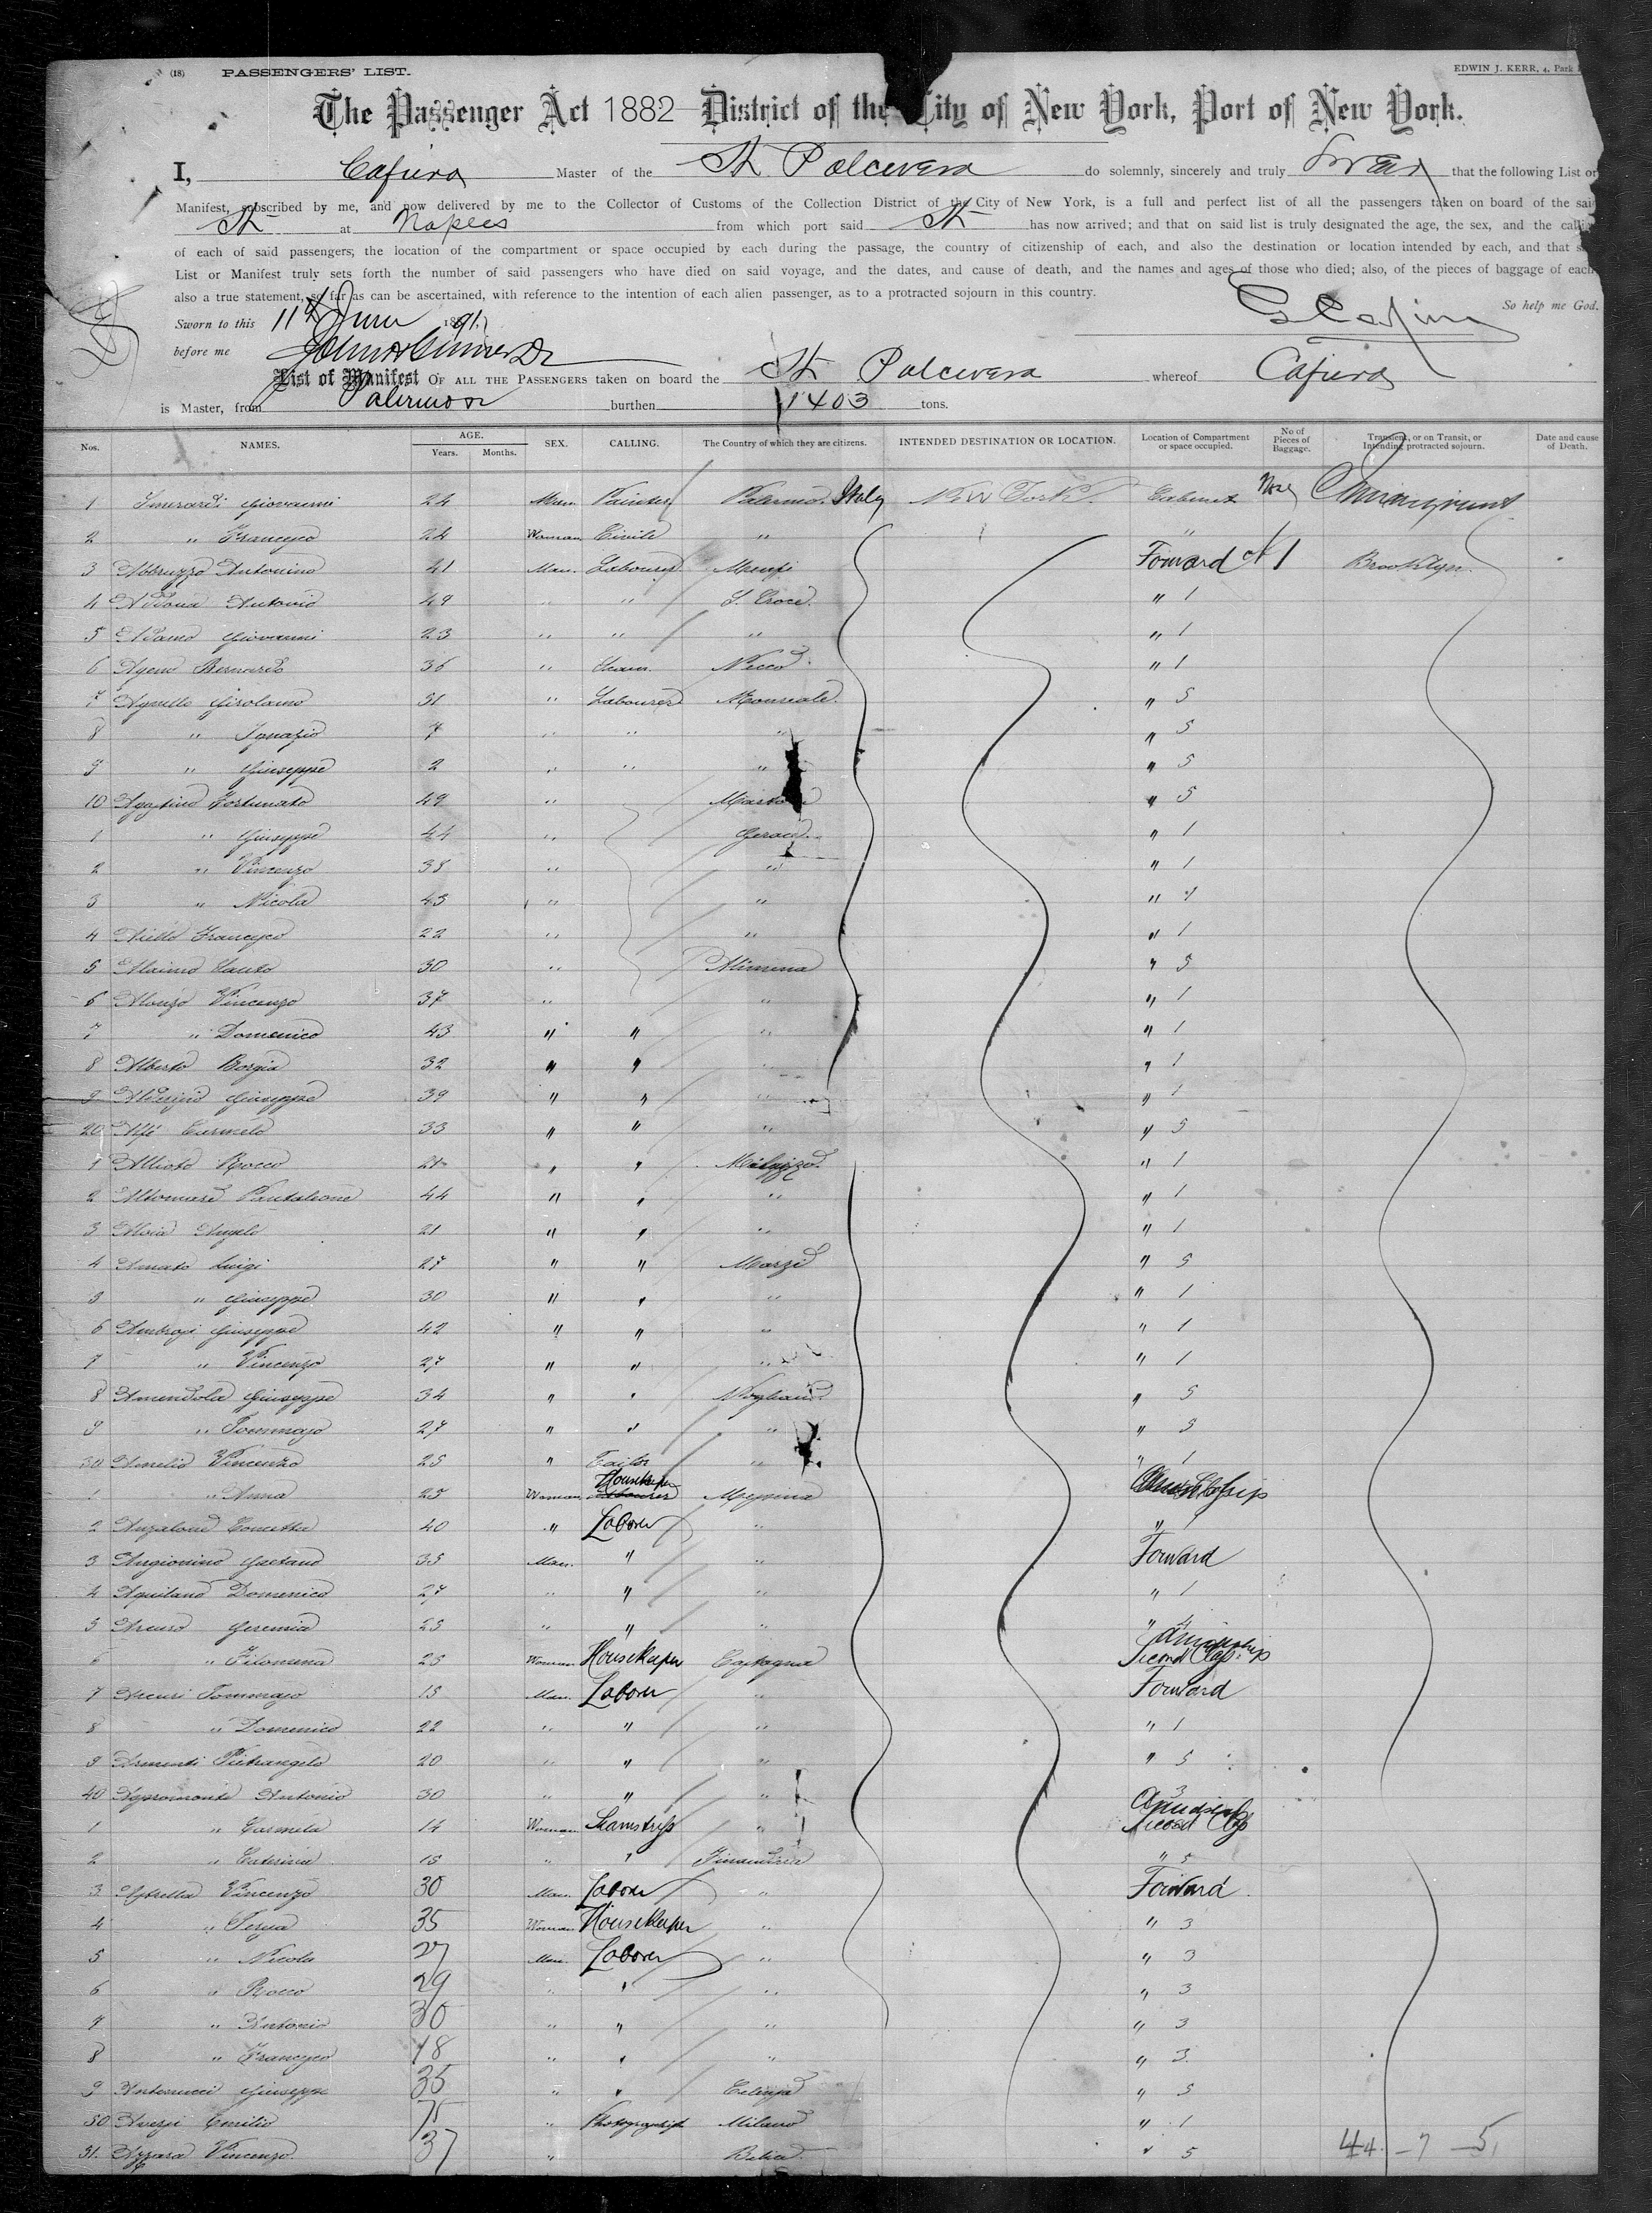 (18) PASSENGERS' LIST.
EDWIN J. KERR, 4, Park
The Passenger Act 1882 District of the City of New York, Port of New York.
I, Cafiero Master of the St Polcevera do solemnly, sincerely and truly Swear that the following List or
Manifest, subscribed by me, and now delivered by me to the Collector of Customs of the Collection District of the City of New York, is a full and perfect list of all the passengers taken on board of the said
St at Naples from which port said St has now arrived; and that on said list is truly designated the age, the sex, and the calling
of each of said passengers; the location of the compartment or space occupied by each during the passage, the country of citizenship of each, and also the destination or location intended by each, and that s
List or Manifest truly sets forth the number of said passengers who have died on said voyage, and the dates, and cause of death, and the names and ages of those who died; also, of the pieces of baggage of each
also a true statement, so far as can be ascertained, with reference to the intention of each alien passenger, as to a protracted sojourn in this country.
So help me God.
Sworn to this 11th June 1891
before me
List or Manifest OF ALL THE PASSENGERS taken on board the St Polcevera whereof Cafiero
is Master, from Palermo burthen 1403 tons.
Nos. NAMES. AGE. Years. Months. SEX. CALLING. The Country of which they are citizens. INTENDED DESTINATION OR LOCATION. Location of Compartment or space occupied. No of Pieces of Baggage. Transient, or on Transit, or Intending protracted sojourn. Date and cause of Death.
1 Giovanni 24 Man Painter Palermo Italy New York Cabinet
2 " Francesco 24 Woman Civile " "
3 Abruzzo Antonino 41 Man Labourer Menfi Forward 1 Brooklyn
4 Antonio 49 " " S. Croce " 1
5 Giovanni 23 " " " " 1
6 Bernardo 36 " " 1
7 Agnello Girolamo 31 " Labourer Monreale " 5
8 " Ignazio 7 " " " " 5
9 " Giuseppe 2 " " " " 5
10 Agostino Fortunato 49 " " 5
1 " Giuseppe 44 " Gerace " 1
2 " Vincenzo 38 " " " 1
3 " Nicola 43 " " "
4 Aiello Francesco 22 " " " 1
5 Alaimo Santo 30 " Alimena " 5
6 Alonzo Vincenzo 37 " " " 1
7 " Domenico 43 " " " " 1
8 Alberto Borgia 32 " " " " 1
9 Giuseppe 39 " " " " 1
20 Alfi Carmelo 33 " " " " 5
1 Alioto Rocco " " " 1
2 Altomare Pantaleone 44 " " " " 1
3 Aloia Angelo 21 " " " " 1
4 Amato Luigi 27 " " Marzi " 5
5 " Giuseppe 30 " " " " 1
6 Ambrosi Giuseppe 42 " " " " 1
7 " Vincenzo 27 " " " " 1
8 Amendola Giuseppe 34 " " " 5
9 " Tommaso 27 " " " " 5
30 Amelio Vincenzo 25 " Tailor " " 1
1 " Anna 25 Woman Housekeeper Messina
2 Anzalone Concetta 40 " Laborer " " 1
3 Angionino Gaetano 35 Man " " Forward
4 Aquilano Domenico 27 " " " " 1
5 Arcuro Geremia 25 " " "
6 " Filomena 25 Woman Housekeeper Castagna Second Class
7 Arcuri Tommaso 15 Man Laborer " Forward
8 " Domenico 22 " " " " 1
9 Armenti Pietrangelo 20 " " " " 5
40 Aspromonte Antonio 30 " " " 3
1 " Carmela 14 Woman Seamstress " Second Class
2 " Caterina 15 " " " 5
3 Astrella Vincenzo 30 Man Laborer " Forward
4 " Teresa 35 Woman Housekeeper " " 3
5 " Nicola 27 Man Laborer " " 3
6 " Rocco 29 " " " " 3
7 " Antonio 30 " " " " 3
8 " Francesco 18 " " " " 3
9 Antonucci Giuseppe 35 " " " 5
50 Emilio " Photographist Milano " 1
51 Azzara Vincenzo 37 " " 5
44 - 7 - 5